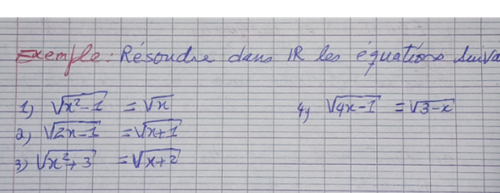 Exemple: Résoudre dans IR les équations suiva
1) √(x²-1) = √x
2) √(2x-1) = √(x+1)
3) √(x²+3) = √(x+2)
4) √(4x-1) = √(3-x)